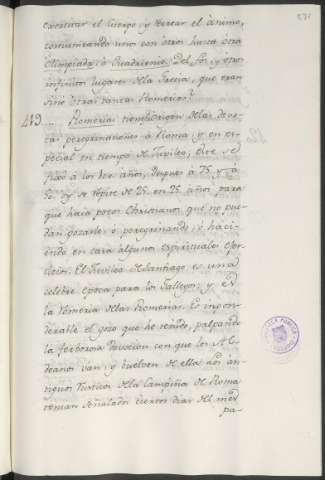 exercitar el cuerpo, y recrear el animo,
comunicandose unos con otros hasta otra
Olimpiada, ó Quadrienio. Del son, y otros
infinitos lugares de la Grecia, que eran
sino otras tantas Romerias?
419 Romerias tienen origen de las devo-
tas peregrinaciones à Roma y en es-
pecial en tiempo de Jubileo, este se
fixó à los 100 años, despues à 75 y à
50, y se repite de 25 en 25 años, para
que haia pocos Christianos que no pue-
dan gozarle, ó peregrinando, ó hacien-
do en casa algunos espirituales exer-
cicios. El Jubileo de Santiago es una
celebre epoca para los Gallegos, y es
la Romeria de las Romerias. Es impon-
derable el gozo que he tenido, palpando
la fervorosa devocion con que los Al-
deanos van, y vuelven de ella. Los an-
tiguos Rusticos de la Campiña de Roma
tenian señalados ciertos dias de el mes
pa-